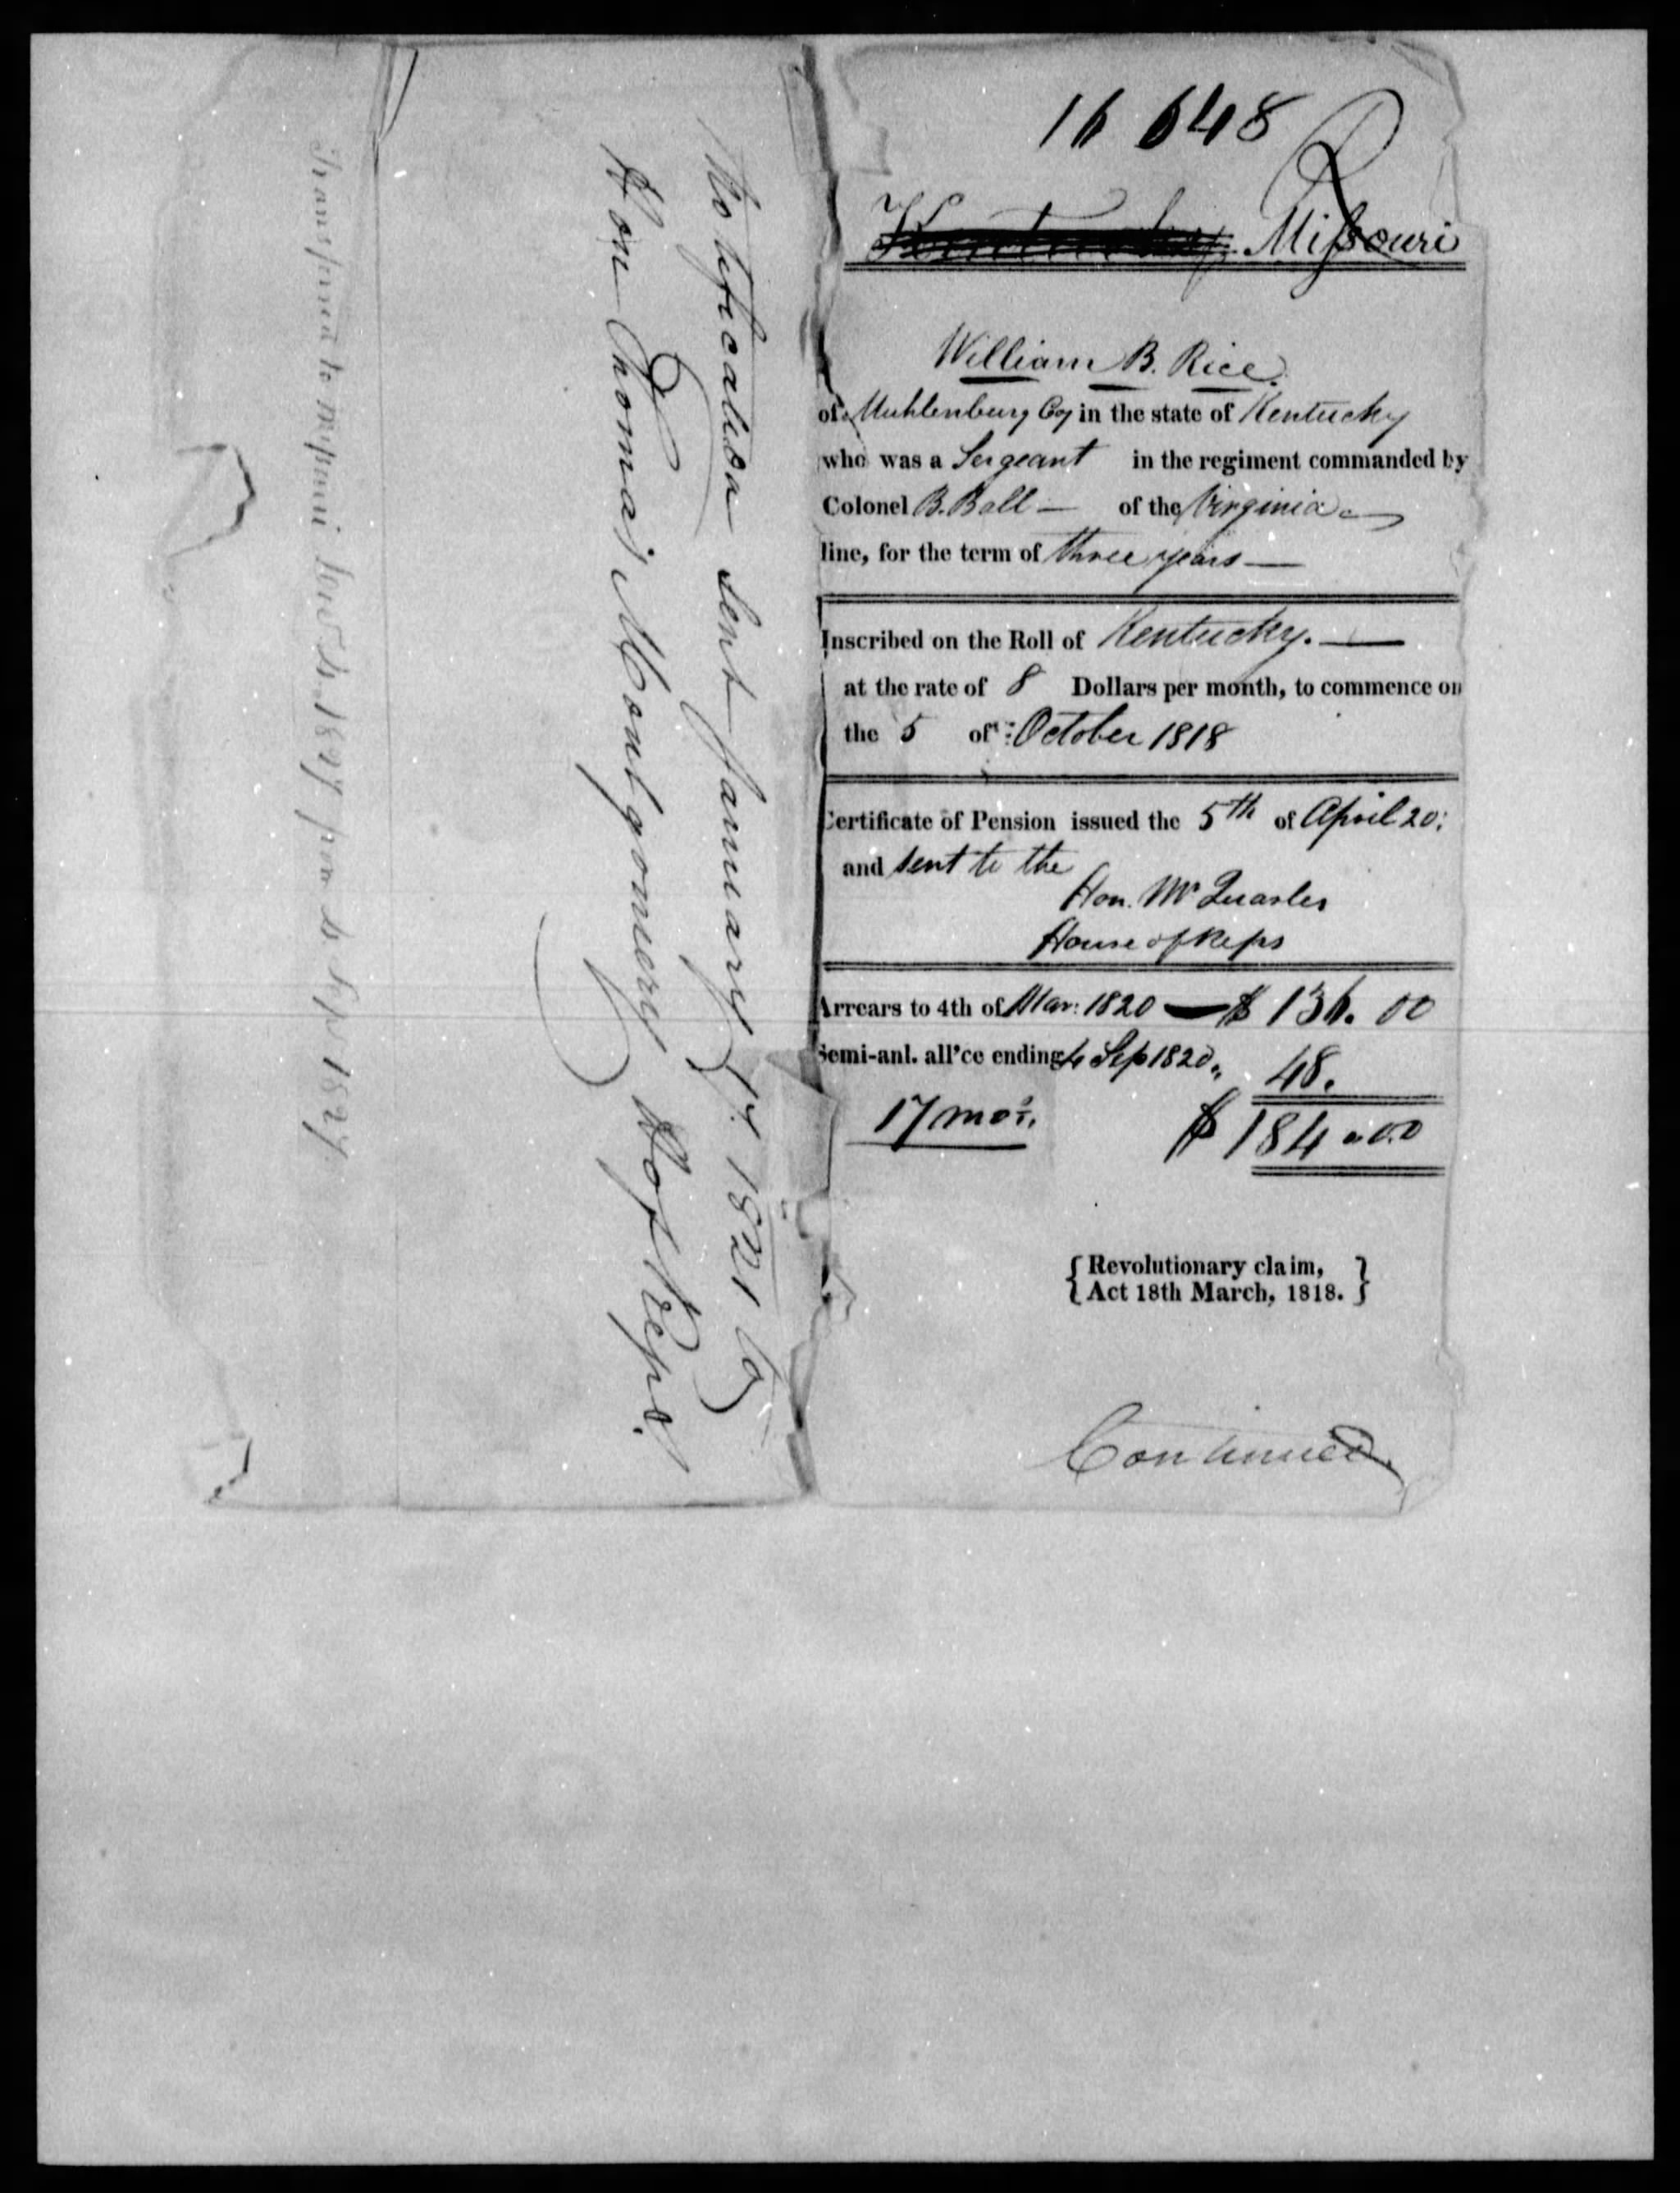 16 648
Kentucky Missouri
William B. Rice.
of Muhlenburg Coy in the state of Kentucky
who was a Sergeant in the regiment commanded by
Colonel B. Ball — of the Virginia
line, for the term of three years —
Inscribed on the Roll of Kentucky. —
at the rate of 8 Dollars per month, to commence on
the 5 of October 1818
Certificate of Pension issued the 5th of April 20:
and sent to the
Hon. Mr Quarles
House of Reps
Arrears to 4th of Mar: 1820 — $ 136. 00
Semi-anl. all'ce ending 4 Sep 1820 „ 48.
17 mos. $ 184 „ 00
{ Revolutionary claim,
Act 18th March, 1818. }
Continued
Notification sent January 1821 to
Hon Thomas Montgomery Ho of Reps.
Transferred to Missouri from 4 Sep 1827